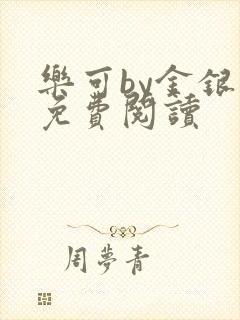 樂可by金銀
免費閱讀
周夢青